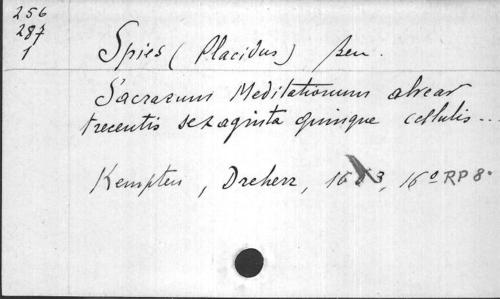 256
287
1
Spies (Placidus) Ben.
Sacrarum Meditationum alvear
trecentis sexaginta quinque cellulis...
Kempten, Dreherr, 16 3, 16° RP 8°